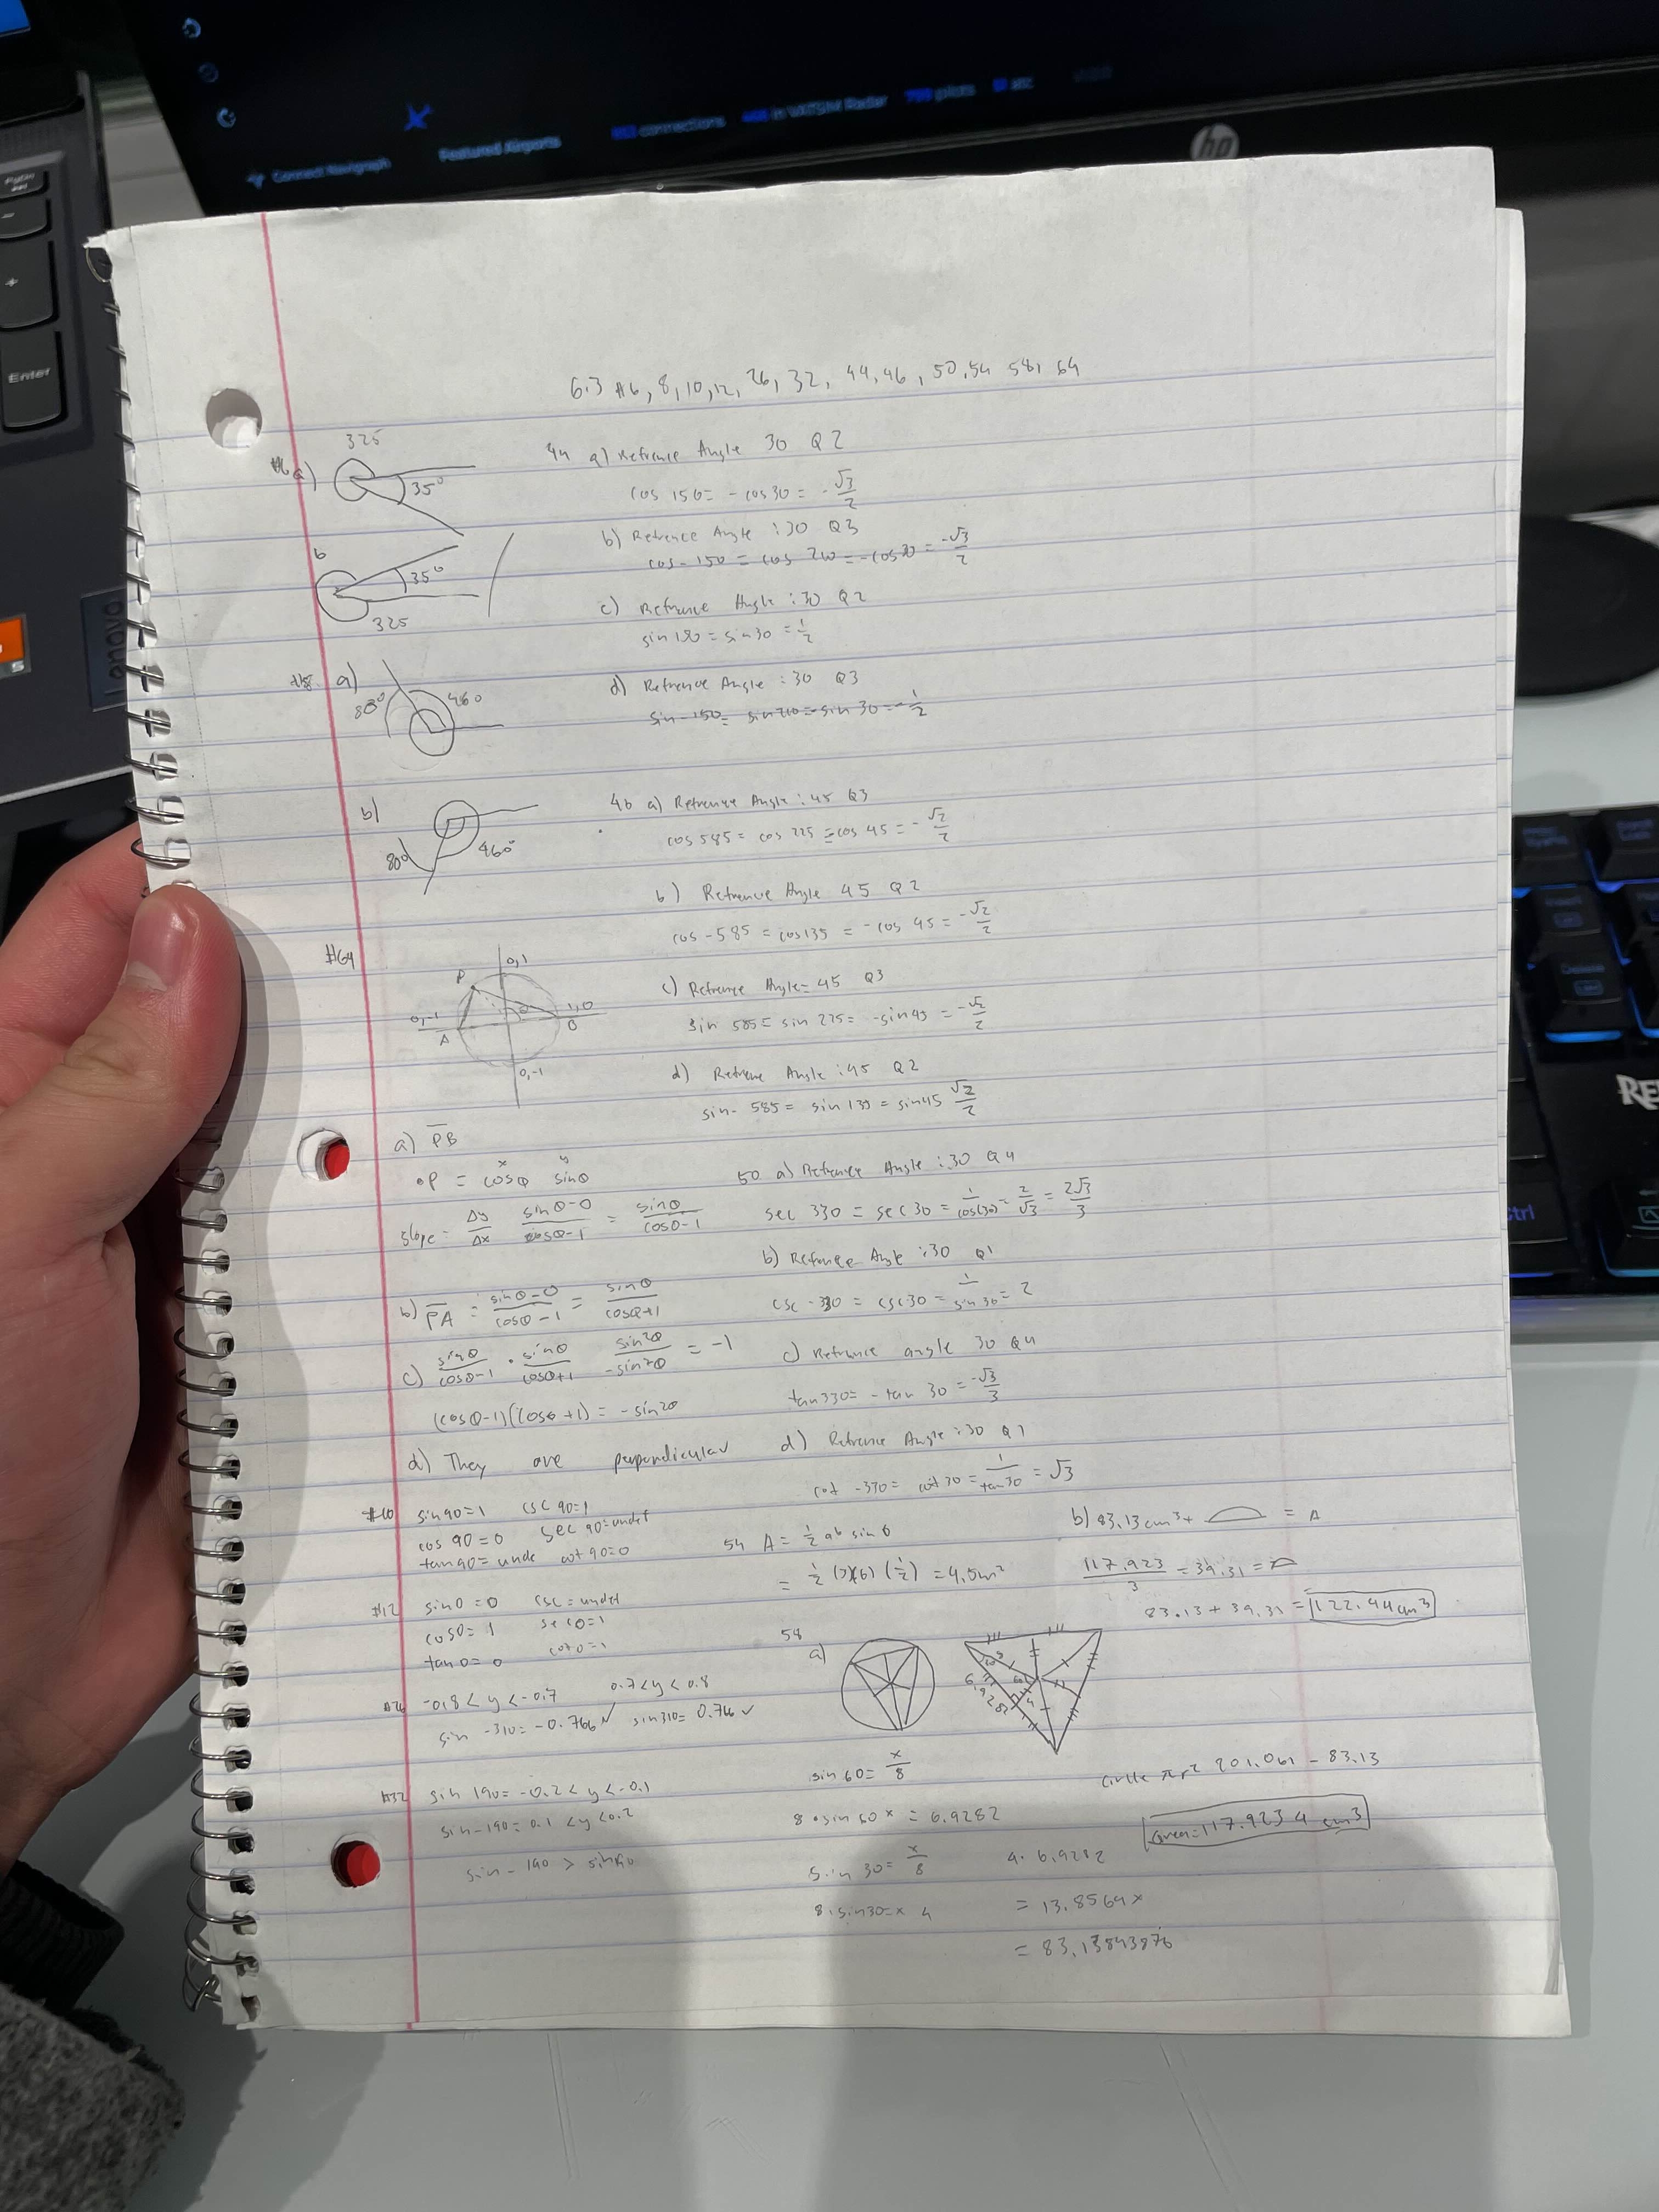 Connect Navigraph
Featured Airports
connections
in VATSIM Radar
pilots
atc
hp
PgDn
-
+
Enter
Lenovo
5
Insert
Delete
Ctrl
RE
6.3 #6, 8, 10, 12, 26, 32, 44, 46, 50, 54 58, 64
#6 a)
325
35°
b
35°
325
#8. a)
80°
460
b)
80°
460°
#64
P
0,1
0,-1
A
1,0
B
θ
0,-1
a) PB
x y
•P = cosθ sinθ
slope = Δy/Δx sinθ-0/cosθ-1 = sinθ/cosθ-1
b) PA = sinθ-0/cosθ-1 = sinθ/cosθ+1
c) sinθ/cosθ-1 • sinθ/cosθ+1 sin²θ/-sin²θ = -1
(cosθ-1)(cosθ+1) = -sin²θ
d) They are perpendicular
#10 sin90=1 csc 90=1
cos 90=0 sec 90=undef
tan90=unde cot 90=0
#12 sin0=0 csc=undef
cos0=1 sec0=1
tan0=0 cot0=1
#26 -0.8<y<-0.7 0.7<y<0.8
sin -310=-0.766✓ sin310=0.766✓
#32 sin 190=-0.2<y<-0.1
sin-190=0.1<y<0.2
sin-190 > sin190
44 a) Refrence Angle 30 Q2
cos 150= -cos30= -√3/2
b) Refrence Angle :30 Q3
cos-150 = cos 210 = -cos30 = -√3/2
c) Refrence Angle :30 Q2
sin 150 = sin30 = 1/2
d) Refrence Angle :30 Q3
sin-150= sin210=-sin 30=-1/2
46 a) Refrence Angle: 45 Q3
cos 585= cos 225 =-cos 45 = -√2/2
b) Refrence Angle 45 Q2
cos -585 = cos135 = -cos 45 = -√2/2
c) Refrence Angle= 45 Q3
sin 585= sin 225= -sin45 = -√2/2
d) Refrence Angle :45 Q2
sin- 585= sin 135 = sin45 √2/2
50 a) Refrence Angle :30 Q4
sec 330 = sec 30 = 1/cos(30) = 2/√3 = 2√3/3
b) Refrence Angle :30 Q1
csc -330 = csc30 = 1/sin 30 = 2
c) Refrence angle 30 Q4
tan330= -tan 30 = -√3/3
d) Refrence Angle :30 Q1
cot -330= cot 30 = 1/tan30 = √3
54 A = 1/2 ab sin θ
= 1/2 (3)(6) (1/2) = 4.5m²
58
a)
6.9282
60
4
sin 60= x/8
8•sin 60 x = 6.9282
sin 30= x/8
8.sin30=x 4
4. 6.9282
= 13.8564 x
= 83.13843876
circle πr² 201.061 - 83.13
Green=117.9234 cm³
b) 83.13cm³+ = A
117.923/3 = 39.31 =
83.13 + 39.31 = 122.44cm³